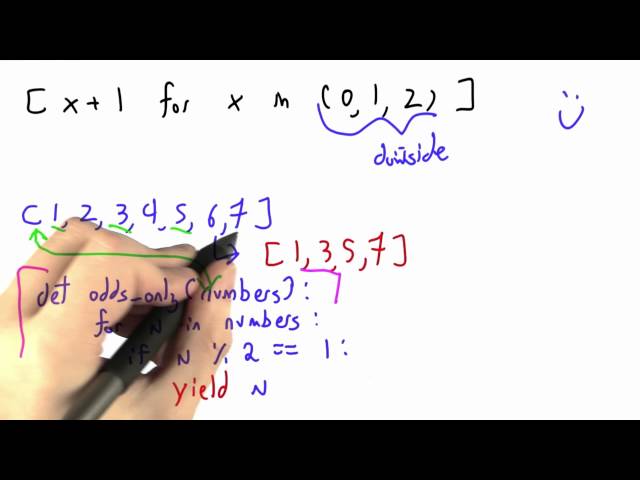 [ x+1 for x in (0,1,2) ]
downside
[1,2,3,4,5,6,7]
[1,3,5,7]
def odds_only(numbers):
for N in numbers:
if N % 2 == 1:
yield N